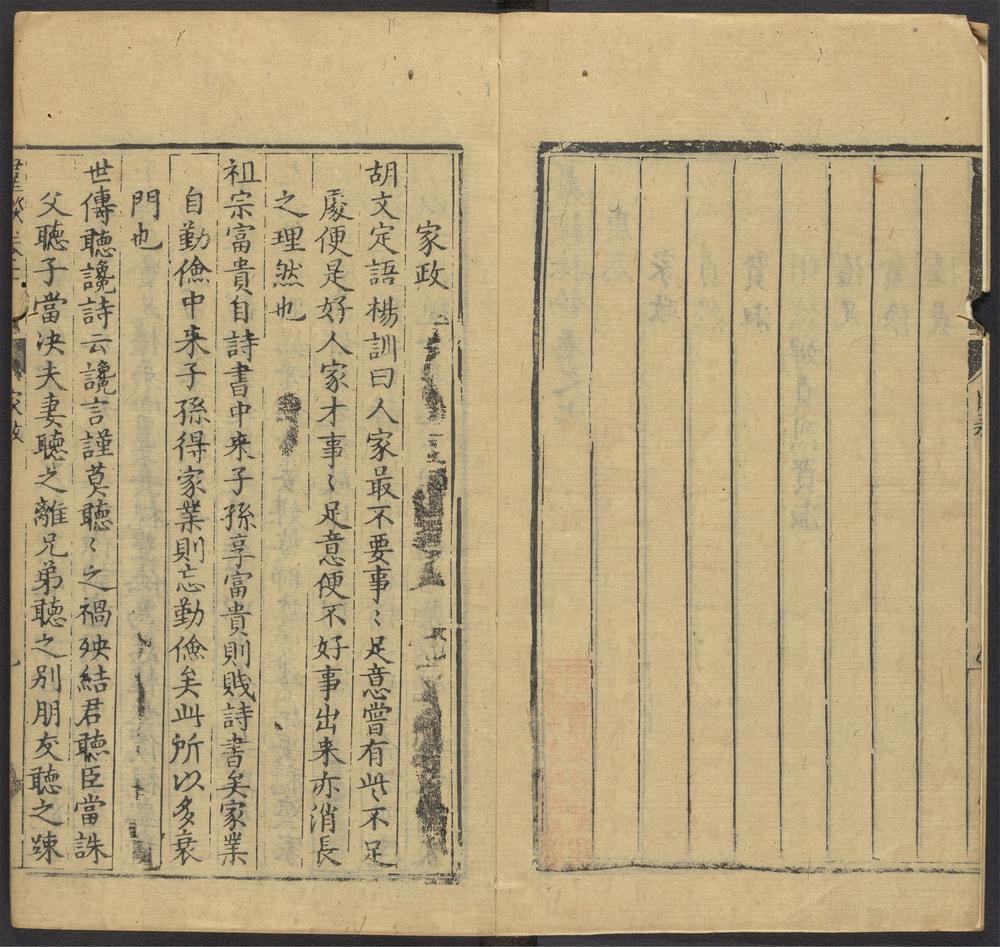 家政
胡文定語楊訓曰人家最不要事〻足意嘗有此不足
處便是好人家才事〻足意便不好事出来亦消長
之理然也
祖宗富貴自詩書中来子孫享富貴則賤詩書矣家業
自勤儉中来子孫得家業則忘勤儉矣此所以多衰
門也
世傳聽讒詩云讒言謹莫聽〻之禍殃結君聽臣當誅
父聽子當决夫妻聽之離兄弟聽之别朋友聽之踈